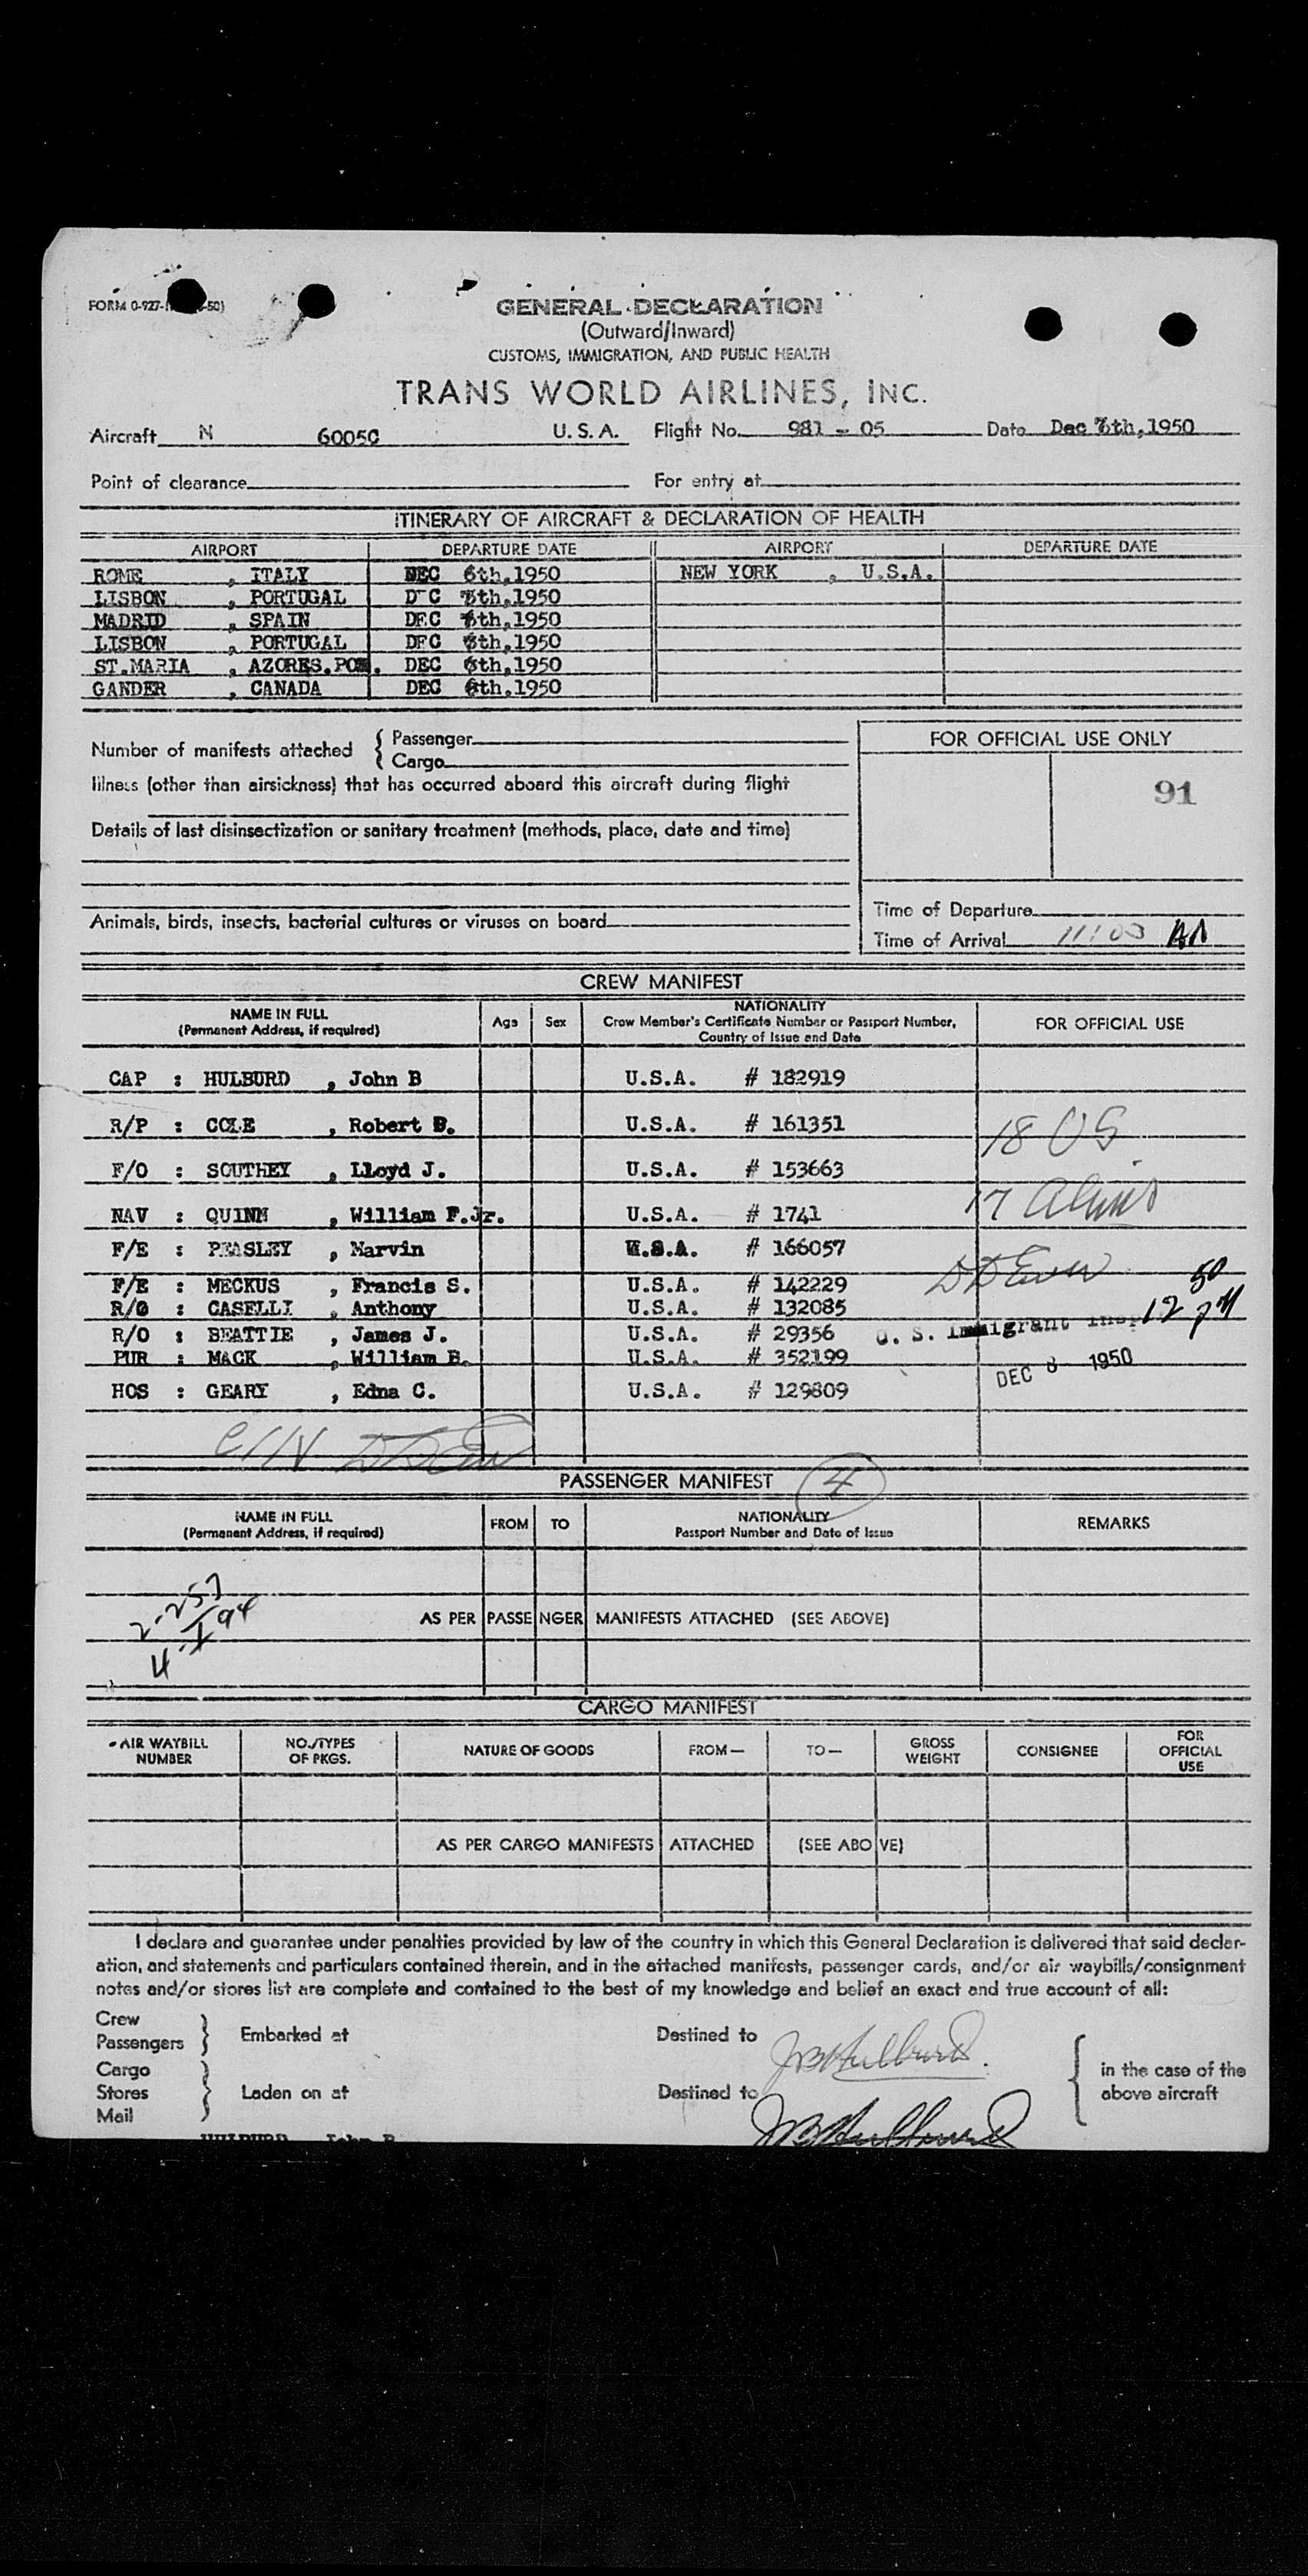 FORM 0-927-
GENERAL DECLARATION
(Outward/Inward)
CUSTOMS, IMMIGRATION, AND PUBLIC HEALTH
TRANS WORLD AIRLINES, INC.
Aircraft N 6005C U.S.A. Flight No. 981 - 05 Date Dec th, 1950
Point of clearance For entry at
ITINERARY OF AIRCRAFT & DECLARATION OF HEALTH
AIRPORT DEPARTURE DATE AIRPORT DEPARTURE DATE
ROME , ITALY DEC 6th,1950 NEW YORK , U.S.A.
LISBON , PORTUGAL DEC th,1950
MADRID , SPAIN DEC th,1950
LISBON , PORTUGAL DEC th,1950
ST.MARIA , AZORES. DEC th,1950
GANDER , CANADA DEC th,1950
Number of manifests attached { Passenger
Cargo
FOR OFFICIAL USE ONLY
91
Illness (other than airsickness) that has occurred aboard this aircraft during flight
Details of last disinsectization or sanitary treatment (methods, place, date and time)
Animals, birds, insects, bacterial cultures or viruses on board
Time of Departure
Time of Arrival 11:03
CREW MANIFEST
NAME IN FULL
(Permanent Address, if required)
Age Sex
NATIONALITY
Crew Member's Certificate Number or Passport Number,
Country of Issue and Date
FOR OFFICIAL USE
CAP : HULBURD , John B U.S.A. # 182919
R/P : COLE , Robert B. U.S.A. # 161351
18 US
F/O : SOUTHEY , Lloyd J. U.S.A. # 153663
17 Aliens
NAV : QUINN , William F.Jr. U.S.A. # 1741
F/E : PEASLEY , Marvin U.S.A. # 166057
F/E : MECKUS , Francis S. U.S.A. # 142229
R/O : CASELLI , Anthony U.S.A. # 132085
12 50 PM
R/O : BEATTIE , James J. U.S.A. # 29356
U. S. Immigrant Insp
PUR : MACK , William B. U.S.A. # 352199
DEC 8 1950
HOS : GEARY , Edna C. U.S.A. # 129809
PASSENGER MANIFEST
4
NAME IN FULL
(Permanent Address, if required)
FROM TO
NATIONALITY
Passport Number and Date of Issue
REMARKS
2-257
4-I 94
AS PER PASSENGER MANIFESTS ATTACHED (SEE ABOVE)
CARGO MANIFEST
AIR WAYBILL
NUMBER
NO./TYPES
OF PKGS.
NATURE OF GOODS
FROM—
TO—
GROSS
WEIGHT
CONSIGNEE
FOR
OFFICIAL
USE
AS PER CARGO MANIFESTS ATTACHED (SEE ABOVE)
I declare and guarantee under penalties provided by law of the country in which this General Declaration is delivered that said declar-
ation, and statements and particulars contained therein, and in the attached manifests, passenger cards, and/or air waybills/consignment
notes and/or stores list are complete and contained to the best of my knowledge and belief an exact and true account of all:
Crew
Passengers } Embarked at Destined to JBHulburd.
Cargo
Stores } Laden on at Destined to { in the case of the
above aircraft
Mail
JBHulburd
HULBURD John B